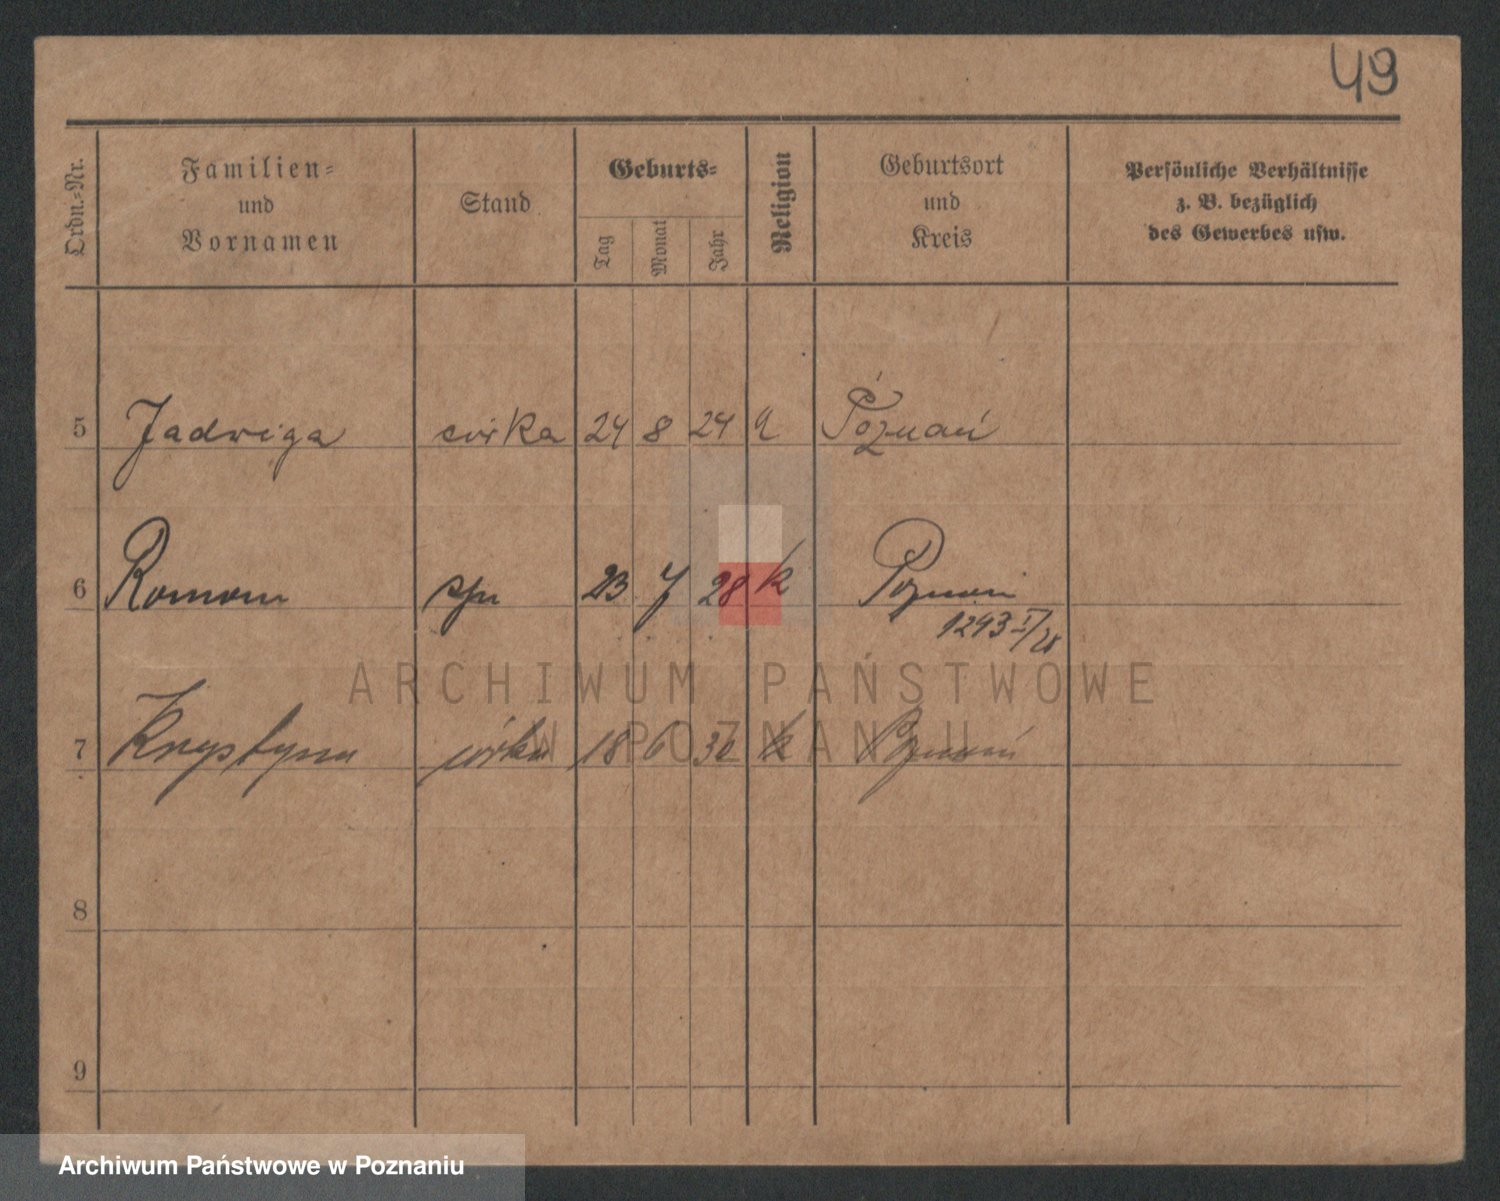 49
Ordn.-Nr.
Familien-
und
Vornamen
Stand
Geburts-
Tag
Monat
Jahr
Religion
Geburtsort
und
Kreis
Persönliche Verhältnisse
z. B. bezüglich
des Gewerbes usw.
5 Jadwiga córka 24 8 24 Poznań
6 Roman syn 23 7 28 k Poznań
1243 I/28
7 Krystyna córka 18 6 30 k Poznań
8
9
ARCHIWUM PAŃSTWOWE
W POZNANIU
Archiwum Państwowe w Poznaniu